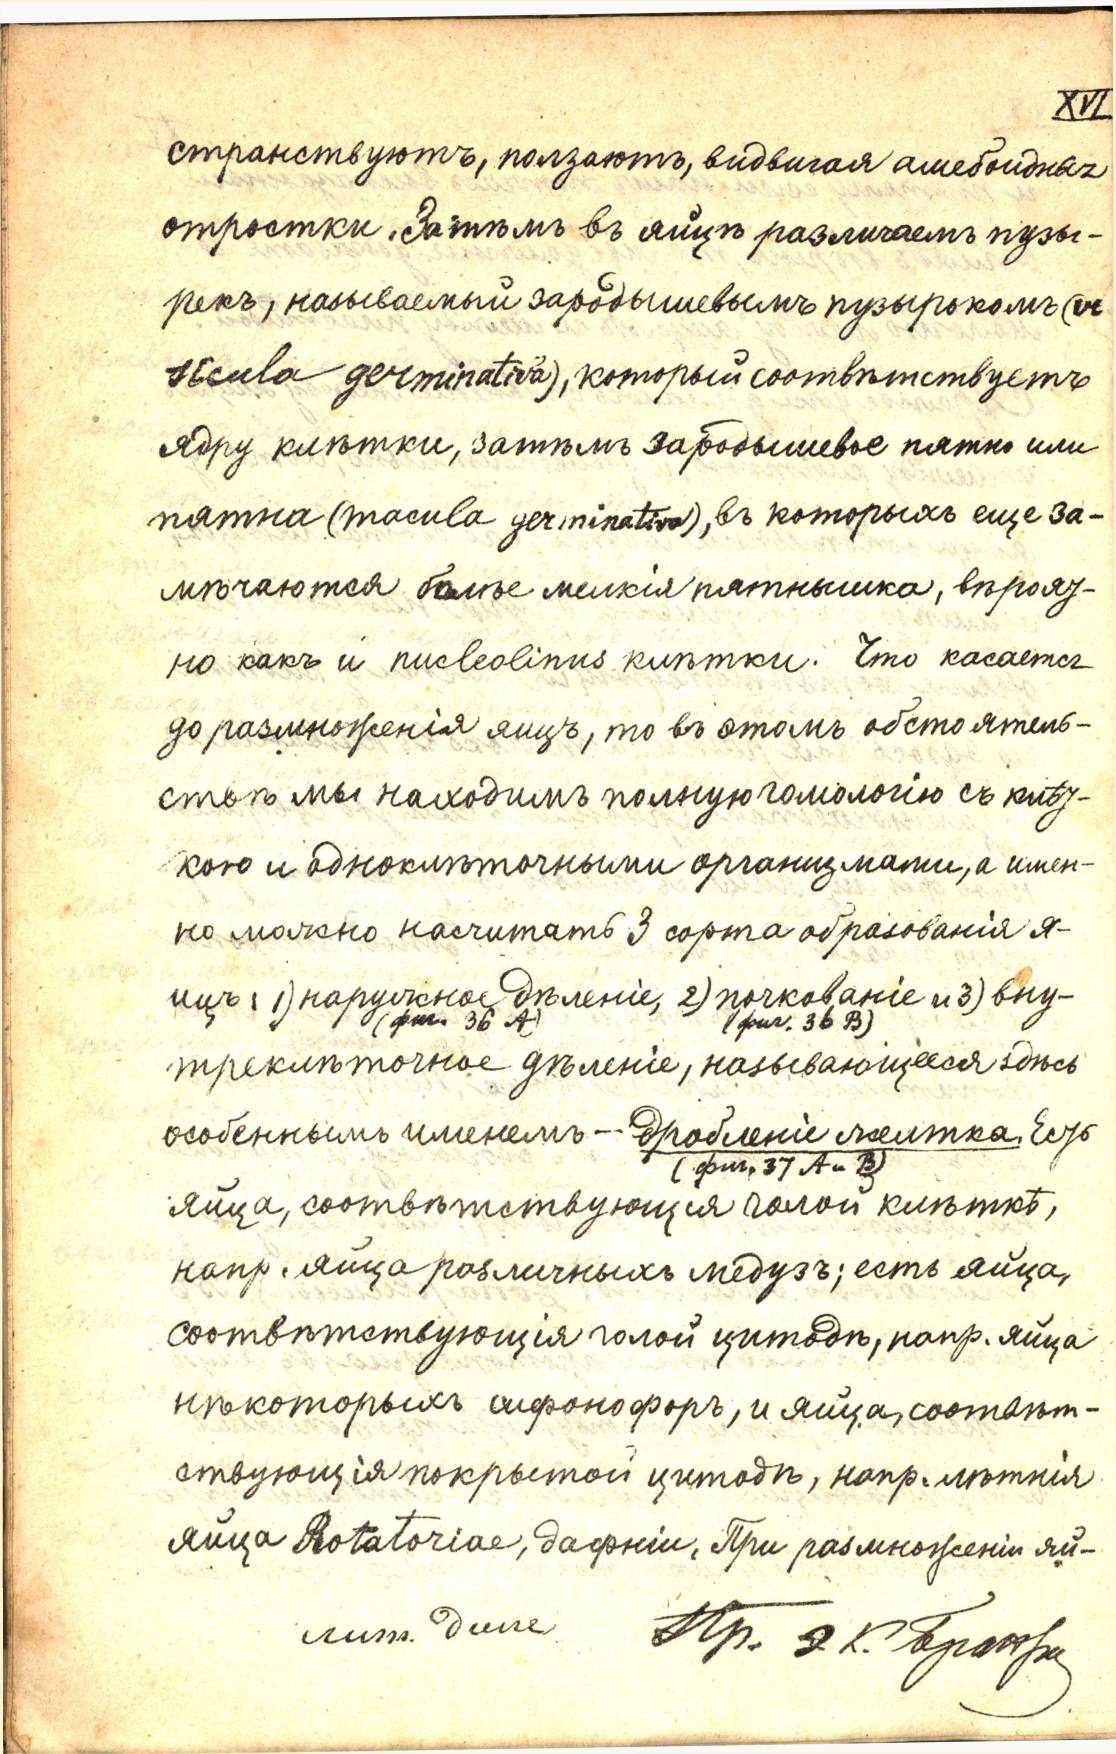 XVI
странствуютъ, ползаютъ, видвигая амебоидныя
отростки. Затѣмъ въ яйцѣ различаемъ пузы-
рекъ, называемый зародышевымъ пузырькомъ (ve
sicula germinativa), который соотвѣтствуетъ
ядру клѣтки, затѣмъ зародышевое пятно или
пятна (macula germinativa), въ которыхъ еще за-
мѣчаются болѣе мелкія пятнышка, вѣроят-
но какъ и nucleolinus клѣтки. Что касается
до размноженія яицъ, то въ этомъ обстоятель-
ствѣ мы находимъ полную гомологію съ клѣт-
кою и одноклѣточными организмами, а имен-
но можно насчитать 3 сорта образованія я-
ицъ: 1) наружное дѣленіе, 2) почкованіе и 3) вну-
(фиг. 36 А) (фиг. 36 В)
треклѣточное дѣленіе, называющееся здѣсь
особеннымъ именемъ — дробленіе желтка. Есть
(фиг. 37 А и В)
яйца, соотвѣтствующія голой клѣткѣ,
напр. яйца различныхъ медузъ; есть яйца,
соотвѣтствующія голой цитодѣ, напр. яйца
нѣкоторыхъ сифонофоръ, и яйца, соотвѣт-
ствующія покрытой цитодѣ, напр. лѣтнія
яйца Rotatoriae, дафніи. При размноженіи яй-
лит. Пр. Э. К. Брандт